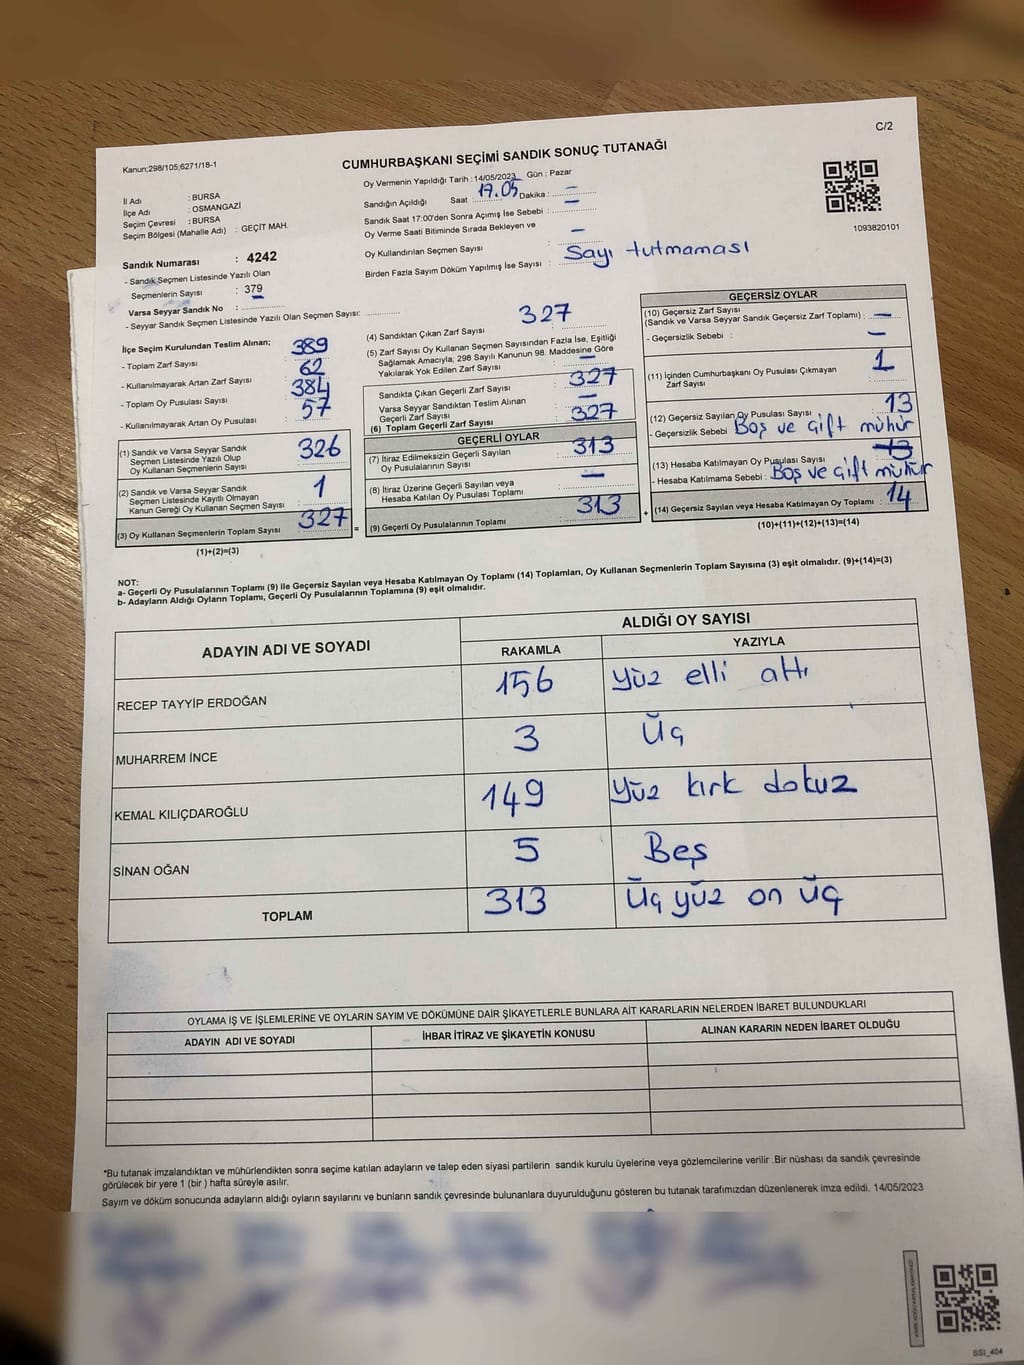 C/2
Kanun;298/105;6271/18-1
CUMHURBAŞKANI SEÇİMİ SANDIK SONUÇ TUTANAĞI
İl Adı : BURSA
İlçe Adı : OSMANGAZİ
Seçim Çevresi : BURSA
Seçim Bölgesi (Mahalle Adı) : GEÇİT MAH.
Oy Vermenin Yapıldığı Tarih : 14/05/2023 Gün : Pazar
Sandığın Açıldığı Saat : 17.05 Dakika : —
Sandık Saat 17:00'den Sonra Açımış İse Sebebi : —
Oy Verme Saati Bitiminde Sırada Bekleyen ve
Oy Kullandırılan Seçmen Sayısı : —
Birden Fazla Sayım Döküm Yapılmış İse Sayısı : Sayı tutmaması
1093820101
Sandık Numarası : 4242
- Sandık Seçmen Listesinde Yazılı Olan
Seçmenlerin Sayısı : 379
Varsa Seyyar Sandık No :
- Seyyar Sandık Seçmen Listesinde Yazılı Olan Seçmen Sayısı:
İlçe Seçim Kurulundan Teslim Alınan;
- Toplam Zarf Sayısı : 389
- Kullanılmayarak Artan Zarf Sayısı : 62
- Toplam Oy Pusulası Sayısı : 384
- Kullanılmayarak Artan Oy Pusulası : 57
(1) Sandık ve Varsa Seyyar Sandık
Seçmen Listesinde Yazılı Olup
Oy Kullanan Seçmenlerin Sayısı : 326
(2) Sandık ve Varsa Seyyar Sandık
Seçmen Listesinde Kayıtlı Olmayan
Kanun Gereği Oy Kullanan Seçmen Sayısı : 1
(3) Oy Kullanan Seçmenlerin Toplam Sayısı : 327
(1)+(2)=(3)
=
(4) Sandıktan Çıkan Zarf Sayısı : 327
(5) Zarf Sayısı Oy Kullanan Seçmen Sayısından Fazla İse, Eşitliği
Sağlamak Amacıyla; 298 Sayılı Kanunun 98. Maddesine Göre
Yakılarak Yok Edilen Zarf Sayısı : —
Sandıkta Çıkan Geçerli Zarf Sayısı : 327
Varsa Seyyar Sandıktan Teslim Alınan
Geçerli Zarf Sayısı : —
(6) Toplam Geçerli Zarf Sayısı : 327
GEÇERLİ OYLAR
(7) İtiraz Edilmeksizin Geçerli Sayılan
Oy Pusulalarının Sayısı : 313
(8) İtiraz Üzerine Geçerli Sayılan veya
Hesaba Katılan Oy Pusulası Toplamı : —
(9) Geçerli Oy Pusulalarının Toplamı : 313
+
GEÇERSİZ OYLAR
(10) Geçersiz Zarf Sayısı
(Sandık ve Varsa Seyyar Sandık Geçersiz Zarf Toplamı) : —
- Geçersizlik Sebebi : —
(11) İçinden Cumhurbaşkanı Oy Pusulası Çıkmayan
Zarf Sayısı : 1
(12) Geçersiz Sayılan Oy Pusulası Sayısı : 13
- Geçersizlik Sebebi : Boş ve Çift mühür
(13) Hesaba Katılmayan Oy Pusulası Sayısı : 13
- Hesaba Katılmama Sebebi : Boş ve Çift mühür
(14) Geçersiz Sayılan veya Hesaba Katılmayan Oy Toplamı : 14
(10)+(11)+(12)+(13)=(14)
NOT:
a- Geçerli Oy Pusulalarının Toplamı (9) ile Geçersiz Sayılan veya Hesaba Katılmayan Oy Toplamı (14) Toplamları, Oy Kullanan Seçmenlerin Toplam Sayısına (3) eşit olmalıdır. (9)+(14)=(3)
b- Adayların Aldığı Oyların Toplamı, Geçerli Oy Pusulalarının Toplamına (9) eşit olmalıdır.
ADAYIN ADI VE SOYADI
ALDIĞI OY SAYISI
RAKAMLA YAZIYLA
RECEP TAYYİP ERDOĞAN 156 Yüz elli altı
MUHARREM İNCE 3 Üç
KEMAL KILIÇDAROĞLU 149 Yüz kırk dokuz
SİNAN OĞAN 5 Beş
TOPLAM 313 Üç yüz on üç
OYLAMA İŞ VE İŞLEMLERİNE VE OYLARIN SAYIM VE DÖKÜMÜNE DAİR ŞİKAYETLERLE BUNLARA AİT KARARLARIN NELERDEN İBARET BULUNDUKLARI
ADAYIN ADI VE SOYADI İHBAR İTİRAZ VE ŞİKAYETİN KONUSU ALINAN KARARIN NEDEN İBARET OLDUĞU
*Bu tutanak imzalandıktan ve mühürlendikten sonra seçime katılan adayların ve talep eden siyasi partilerin sandık kurulu üyelerine veya gözlemcilerine verilir .Bir nüshası da sandık çevresinde
görülecek bir yere 1 (bir ) hafta süreyle asılır.
Sayım ve döküm sonucunda adayların aldığı oyların sayılarını ve bunların sandık çevresinde bulunanlara duyurulduğunu gösteren bu tutanak tarafımızdan düzenlenerek imza edildi. 14/05/2023
SSI_404